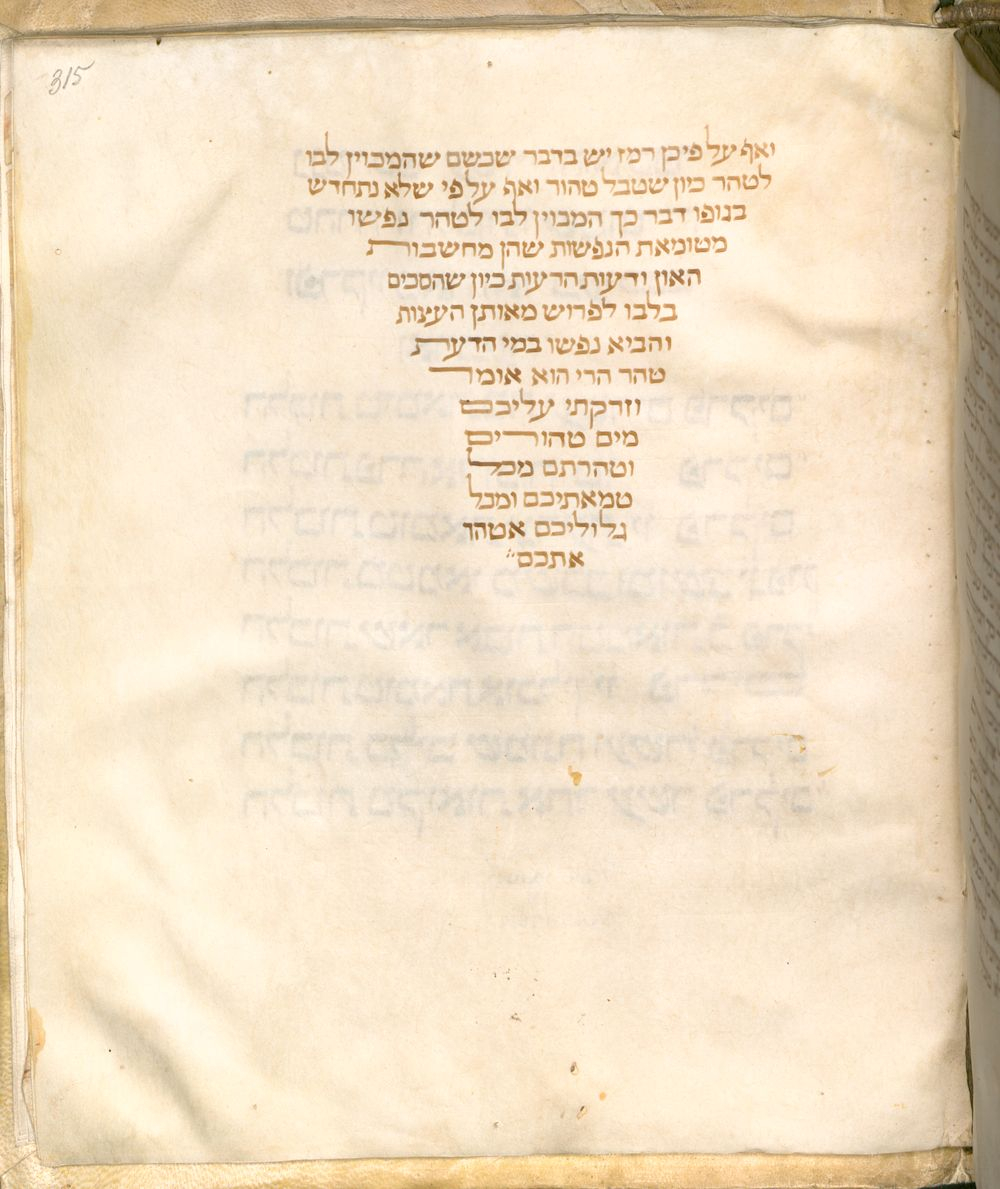 315
ואף על פי כן רמז יש בדבר שכשם שהמכוין לבו
לטהר כיון שטבל טהור ואף על פי שלא נתחדש
בגופו דבר כך המכוין לבו לטהר נפשו
מטומאת הנפשות שהן מחשבות
האון ודעות הרעות כיון שהסכים
בלבו לפרוש מאותן העצות
והביא נפשו במי הדעת
טהר הרי הוא אומר
וזרקתי עליכם
מים טהורים
וטהרתם מכל
טמאתיכם ומכל
גלוליכם אטהר
אתכם